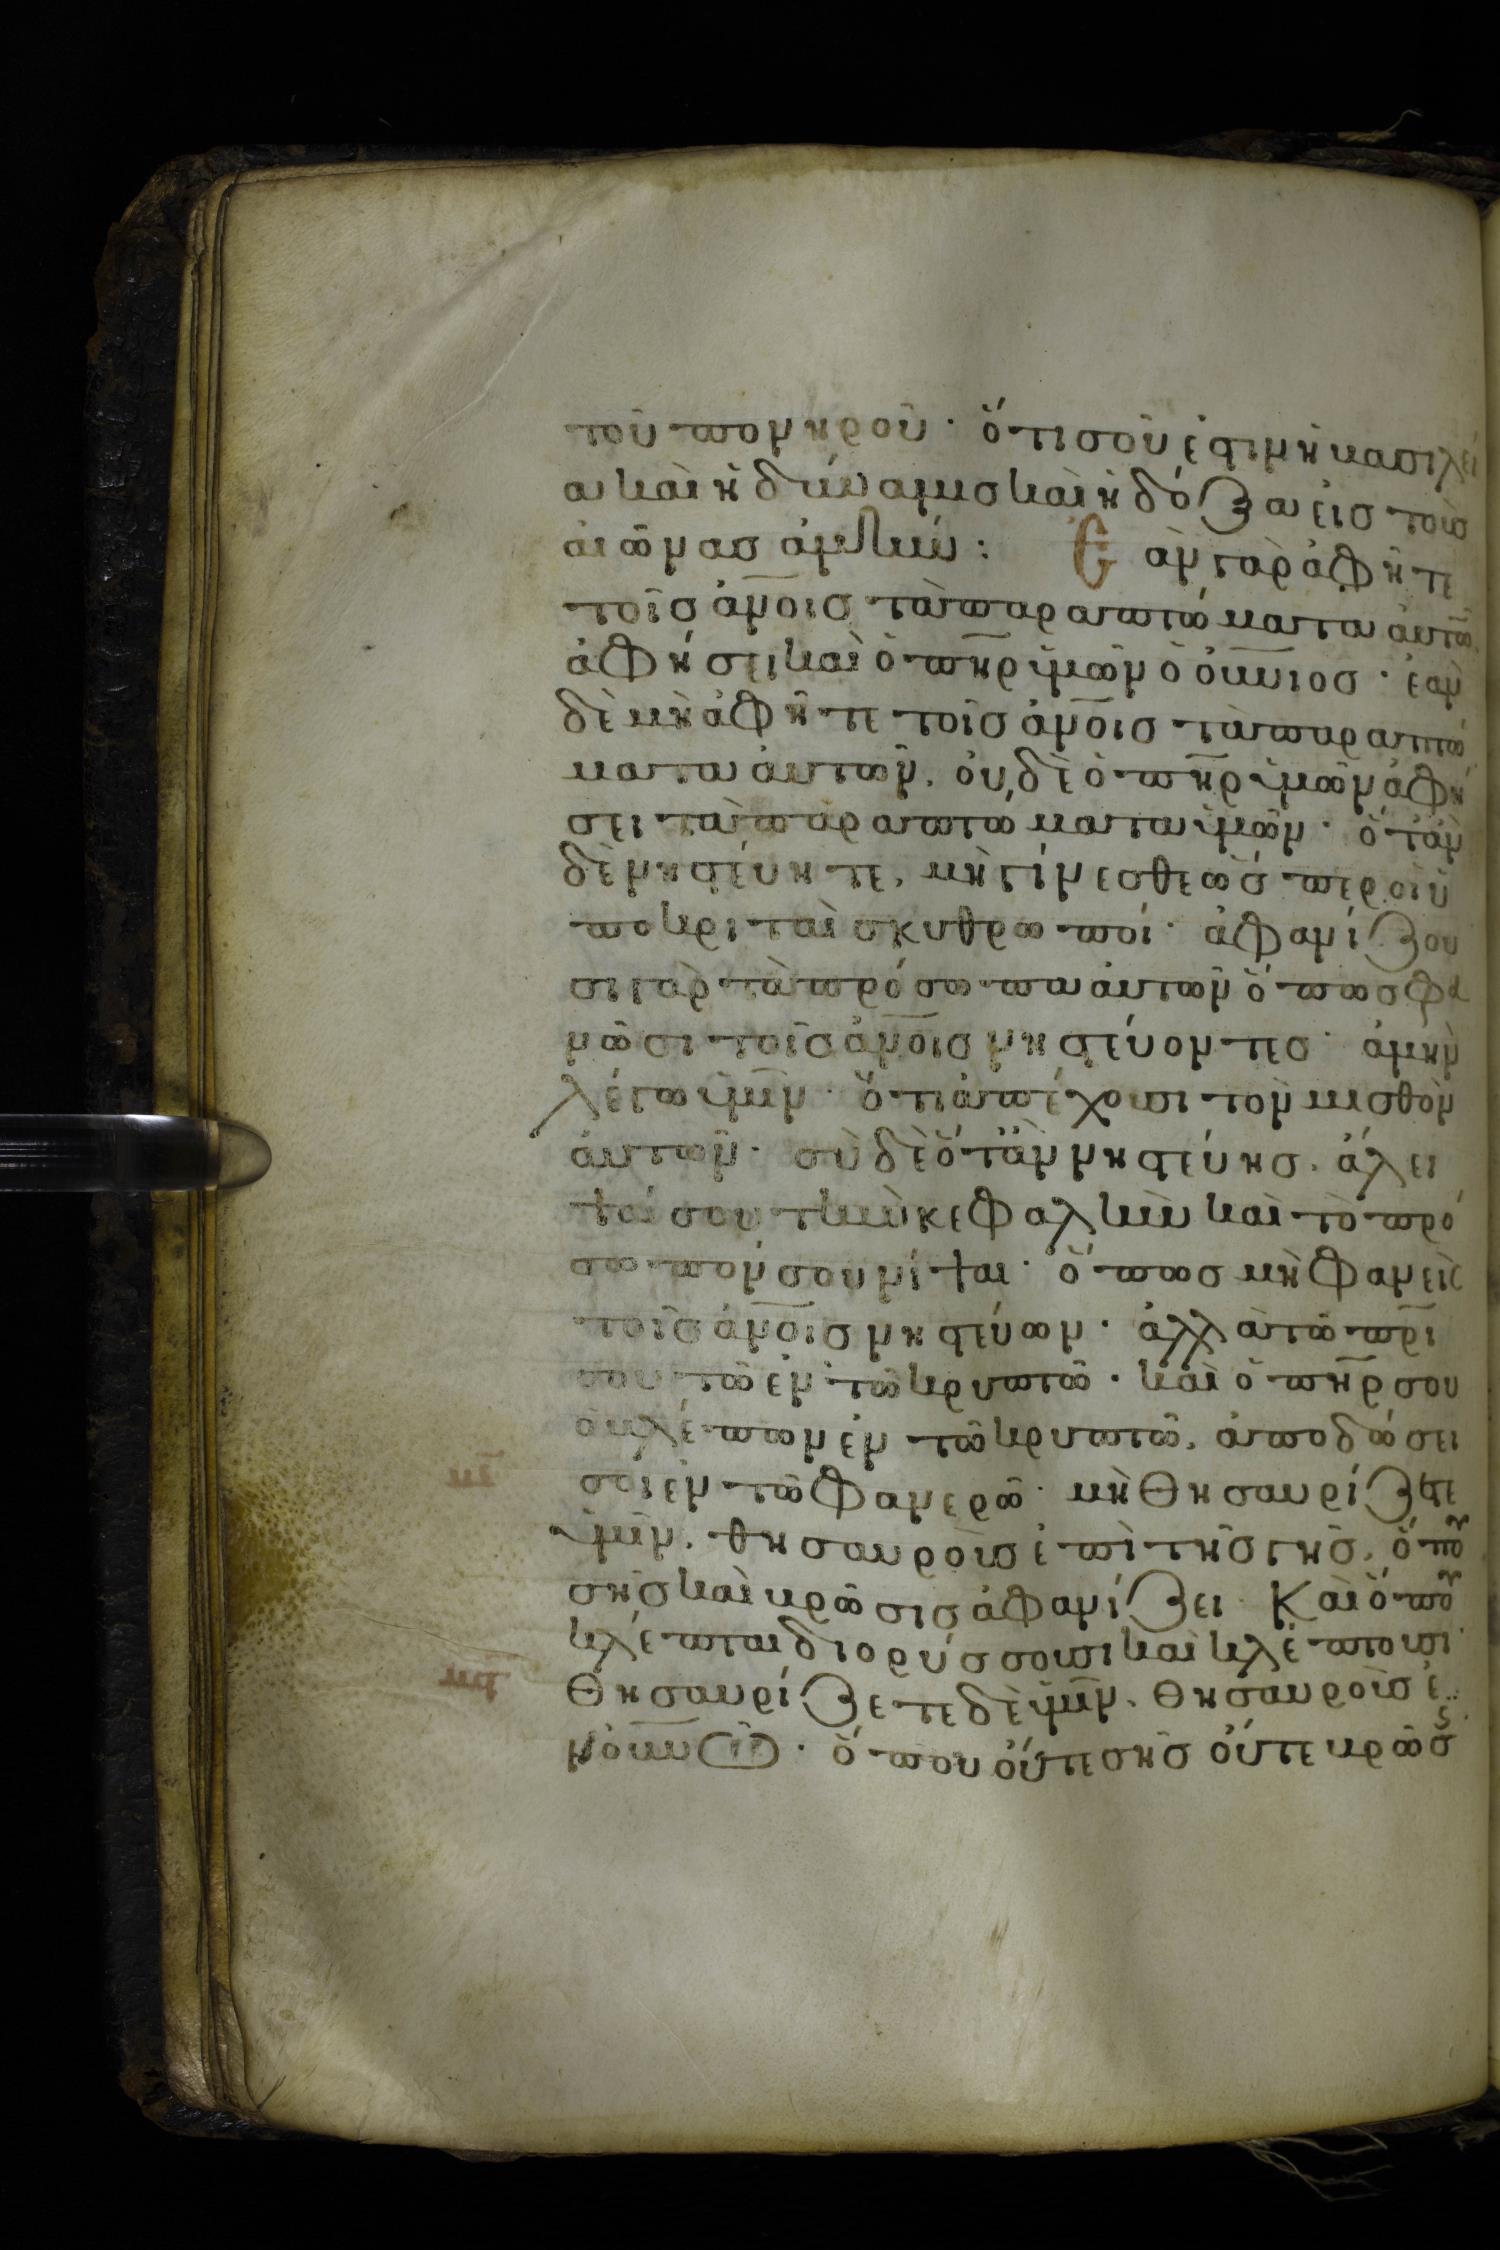 τοῦ πονηροῦ · ὅτι σοῦ ἐστιν ἡ βασιλεί
α καὶ ἡ δύναμις καὶ ἡ δόξα εἰς τοὺς
αἰῶνας ἀμήν : Ἐὰν γὰρ ἀφῆτε
τοῖς ἀν̅οις τὰ παραπτώματα αὐτῶ
ἀφήσει καὶ ὁ πη̅ρ ὑμῶν ὁ οὐ̅νιος · ἐὰν
δὲ μὴ ἀφῆτε τοῖς ἀν̅οις τὰ παραπτώ
ματα αὐτῶν, οὐδὲ ὁ πη̅ρ ὑμῶν ἀφή
σει τὰ παραπτώματα ὑμῶν · ὅταν
δὲ νηστεύητε, μὴ γίνεσθε ὥσπερ οἱ ὑ
ποκριταὶ σκυθρωποί · ἀφανίζου
σι γὰρ τὰ πρόσωπα αὐτῶν ὅπως φα
νῶσι τοῖς ἀν̅οις νηστεύοντες · ἀμὴν
λέγω ὑμῖν · ὅτι ἀπέχουσι τὸν μισθὸν
αὐτῶν · σὺ δὲ ὅταν νηστεύης, ἄλει
ψαί σου τὴν κεφαλὴν καὶ τὸ πρό
σωπόν σου νίψαι · ὅπως μὴ φανεὶς
τοῖς ἀν̅οις νηστεύων · ἀλλὰ τῶ πρ̅ι
σου τῶ ἐν τῶ κρυπτῶ · καὶ ὁ πη̅ρ σου
ὁ βλέπων ἐν τῶ κρυπτῶ, ἀποδώσει
σοί ἐν τῶ φανερῶ · μὴ θησαυρίζετε
ὑμῖν, θησαυροὺς ἐπὶ τῆς γῆς, ὅπου
σὴς καὶ βρῶσις ἀφανίζει · Καὶ ὅπου
κλέπται διορύσσουσι καὶ κλέπτουσι
Θησαυρίζετε δὲ ὑμῖν, θησαυροὺς ἐ
ν οὐ̅νῶ · ὅπου οὔτε σὴς οὔτε βρῶσ